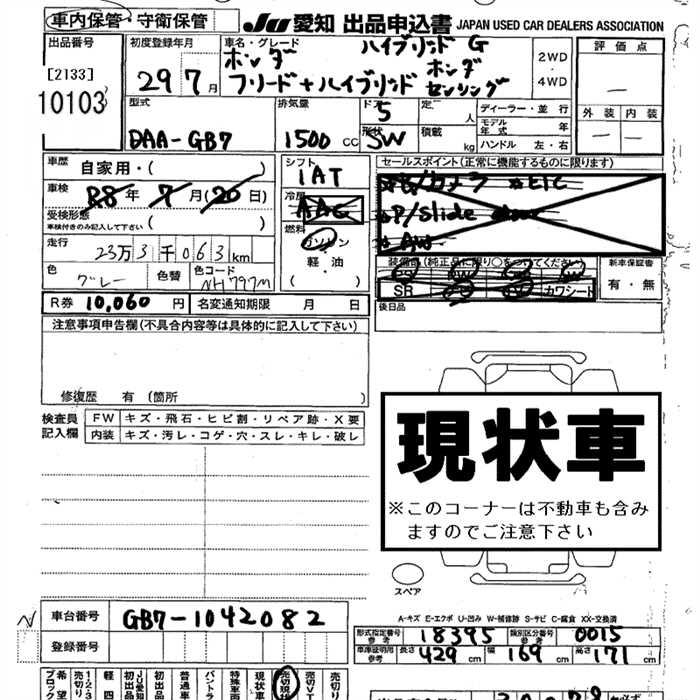 車内保管・守衛保管
JU 愛知 出品申込書 JAPAN USED CAR DEALERS ASSOCIATION
出品番号
[2133]
10103
初度登録年月
29 7月
車名・グレード
ハイブリッド G
ホンダ
ホンダ
フリード+ハイブリッド センシング
2WD
・
4WD
評価点
外装 内装
型式
DAA-GB7
排気量
1500 cc
ド 5
形状 SW
定 人
積載 kg
ディーラー・並行
モデル年式 年
ハンドル 左・右
車歴
自家用・( )
車検
R8年 7月(20日)
受検形態
車検付きのみ記入して下さい ( )
走行
23万3千063km
色
グレー
色替
色コード
NH797M
シフト
IAT
冷房
AAC
燃料
ガソリン
・
軽油
・
( )
セールスポイント (正常に機能するものに限ります)
P/Slide
AW
装備品 (純正品に限り○をつけてください)
SR
カワシート
新車保証書
有・無
後日品
R券 10,060 円
名変通知期限 月 日
注意事項申告欄 (不具合内容等は具体的に記入して下さい)
修復歴 有 (箇所
検査員
記入欄
FW キズ・飛石・ヒビ割・リペア跡・X要
内装 キズ・汚レ・コゲ・穴・スレ・キレ・破レ
現状車
※このコーナーは不動車も含み
ますのでご注意下さい
スペア
A-キズ E-エクボ U-凹み W-補修跡 S-サビ C-腐食 XX-交換済
N
車台番号 GB7-1042082
登録番号
形式指定番号 参考 18395 類別区分番号 参考 0015
車庫証明用 参考 長さ 429 cm 幅 169 cm 高さ 171 cm